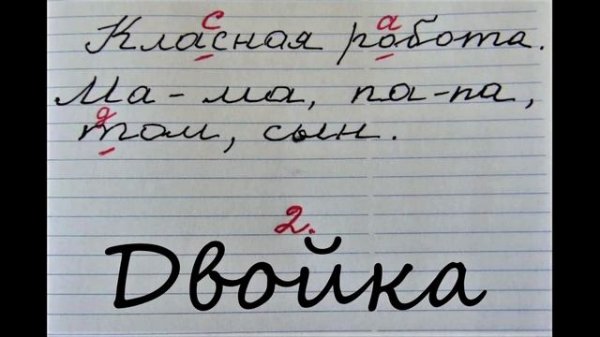 с а
Класная робота.
Ма-ма, па-па,
д
том, сын.
2.
Двойка